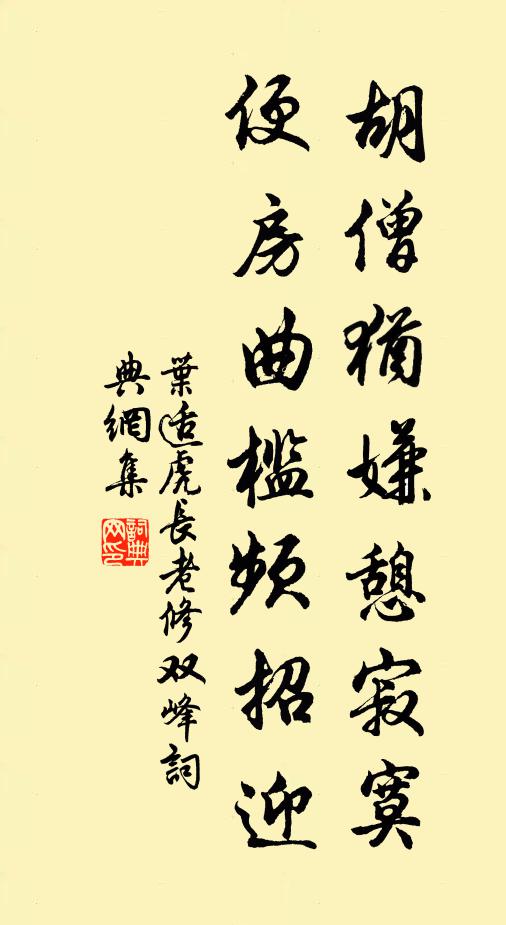 胡僧猶嫌憩寂寞
便房曲檻頻招迎
葉适虎長老修双峰詞
典網集
詞典網印